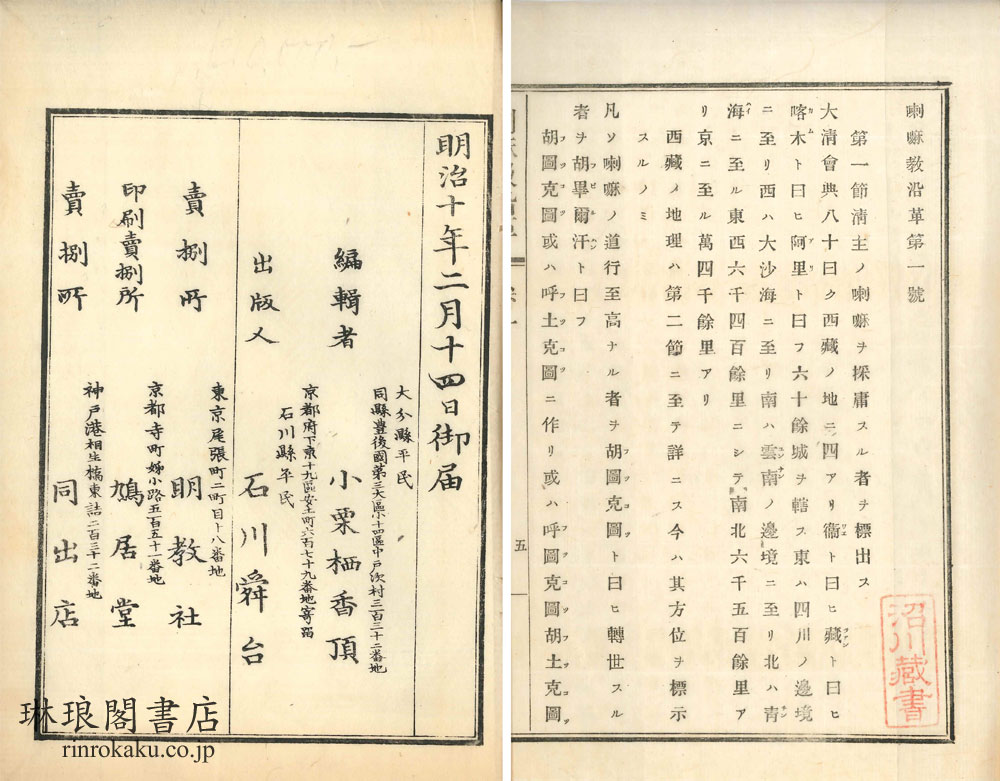 喇嘛教沿革第一號
第一節淸主ノ喇嘛ヲ採庸スル者ヲ標出ス
大淸會典八十曰ク西藏ノ地ニ四アリ衞ト曰ヒ藏ト曰ヒ
喀木ト曰ヒ阿里ト曰フ六十餘城ヲ轄ス東ハ四川ノ邊境
ニ至リ西ハ大沙海ニ至リ南ハ雲南ノ邊境ニ至リ北ハ靑
海ニ至ル東西六千四百餘里ニシテ南北六千五百餘里ア
リ京ニ至ル萬四千餘里アリ
西藏ノ地理ハ第二節ニ至テ詳ニス今ハ其方位ヲ標示
スルノミ
凡ソ喇嘛ノ道行至高ナル者ヲ胡圖克圖ト曰ヒ轉世スル
者ヲ胡畢爾汗ト曰フ
胡圖克圖或ハ呼土克圖ニ作リ或ハ呼圖克圖胡土克圖
五
沼川藏書
明治十年二月十四日御届
大分縣平民
同縣豊後國第三大區小十四區中戸次村三百三十二番地
編輯者 小栗栖香頂
京都府下東十九區安土町六百七十九番地寄留
石川縣平民
出版人 石川舜台
東京尾張町二町目十八番地
賣捌所 明教社
京都寺町姊小路五百五十一番地
印刷賣捌所 鳩居堂
神戸港相生橋東詰二百三十二番地
賣捌所 同出店
琳琅閣書店
rinrokaku.co.jp